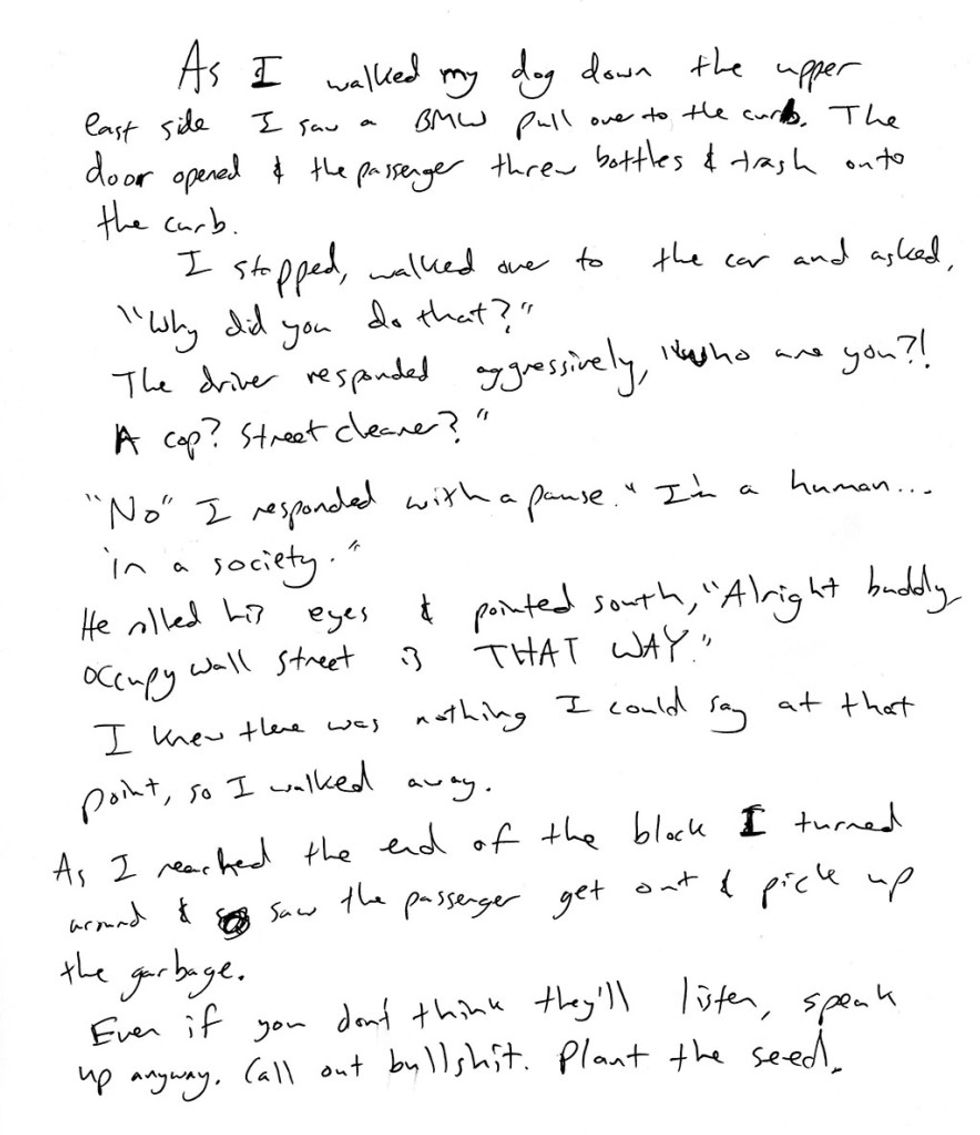 As I walked my dog down the upper
east side I saw a BMW pull over to the curb. The
door opened & the passenger threw bottles & trash onto
the curb.
I stopped, walked over to the car and asked,
"Why did you do that?"
The driver responded aggressively, "Who are you?!
A cop? Street cleaner?"
"No" I responded with a pause. "I'm a human...
in a society."
He rolled his eyes & pointed south, "Alright buddy
occupy wall street is THAT WAY."
I knew there was nothing I could say at that
point, so I walked away.
As I reached the end of the block I turned
around & saw the passenger get out & pick up
the garbage.
Even if you don't think they'll listen, speak
up anyway. Call out bullshit. Plant the seed.